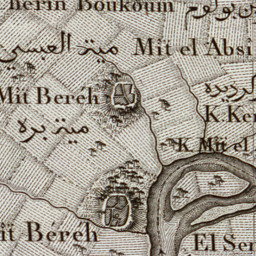 herin Boukoum
ن بولوم
ميت العبسي
Mit el Absi
Mit Beréh
ميت بره
K. Ker
K. Mit el
it Béreh
El Sen